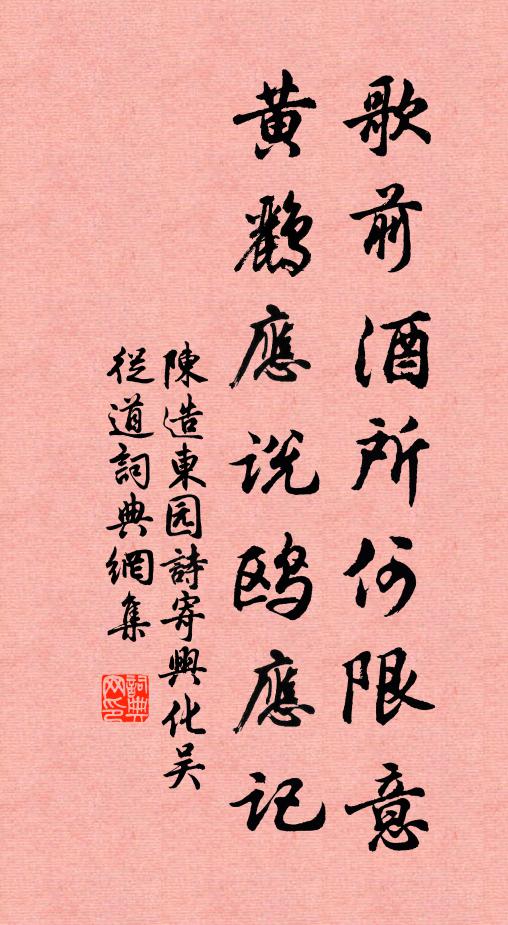 歌前酒所何限意
黄鸝應说鸥應记
陳造東园詩寄興化吴
從道詞典網集
詞典
网印